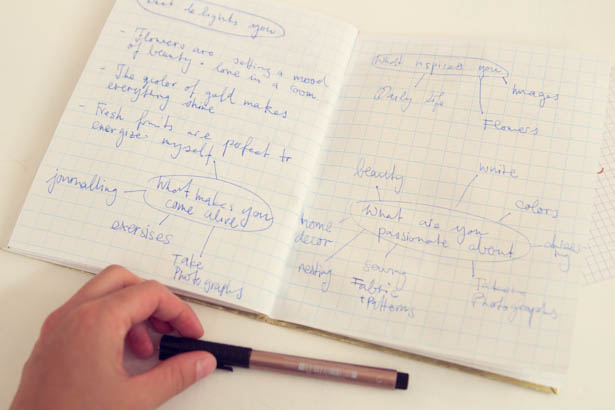 What delights you
- Flowers are setting a mood
of beauty + love in a room
- The color of gold makes
everything shine
- Fresh fruits are perfect to
energize myself
journalling
What makes you
come alive
exersises
Take
Photographs
What inspires you
Daily life
Images
Flowers
beauty
white
colors
What are you
passionate about
home
decor
nesting
sewing
Fabric
+ Patterns
Photographs